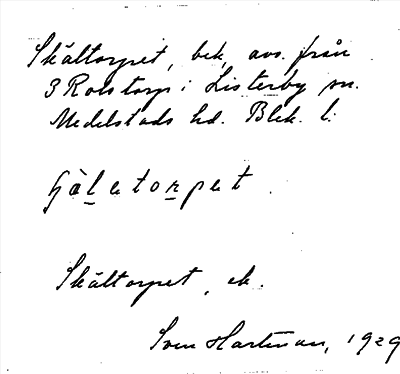 Skältorpet, bek, avs. från
3 Rolstorp i Listerby sn.
Medelstads hd. Blek. l:
hàletorpet.
Skältorpet, ek.
Sven Hartman, 1929